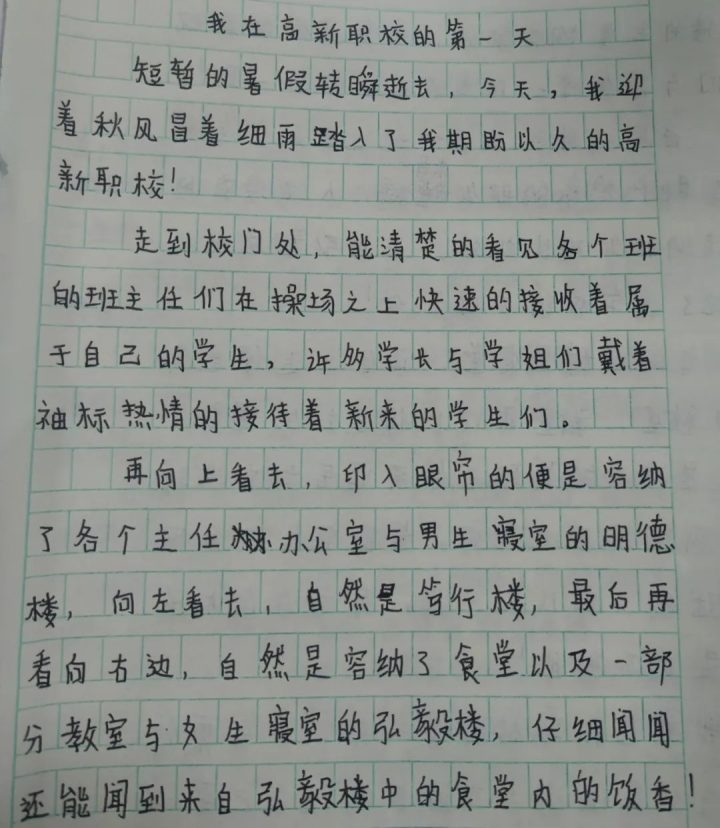 我在高新职校的第一天
短暂的暑假转瞬逝去，今天，我迎
着秋风冒着细雨踏入了我期盼以久的高
新职校！
走到校门处，能清楚的看见各个班
的班主任们在操场之上快速的接收着属
于自己的学生，许多学长与学姐们戴着
袖标热情的接待着新来的学生们。
再向上看去，印入眼帘的便是容纳
了各个主任办公室与男生寝室的明德
楼，向左看去，自然是笃行楼，最后再
看向右边，自然是容纳了食堂以及一部
分教室与女生寝室的弘毅楼，仔细闻闻
还能闻到来自弘毅楼中的食堂内的饭香！